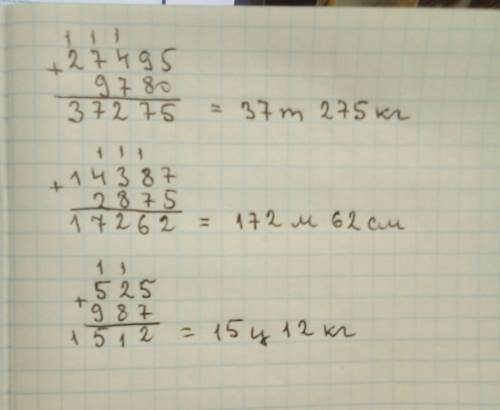 1 1 1
+27495
9780
37275 = 37т 275кг
1 1 1
+14387
2875
17262 = 172 м 62 см
1 1
+525
987
1512 = 15 ц 12 кг